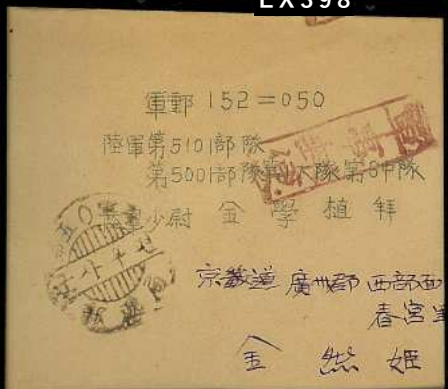 EX398
軍郵 152=050
陸軍第5101部隊
第5001部隊第 大隊第8中隊
陸軍少尉 金學植 拜
京畿道 廣州郡 西部面
春宮里
金 然 姬